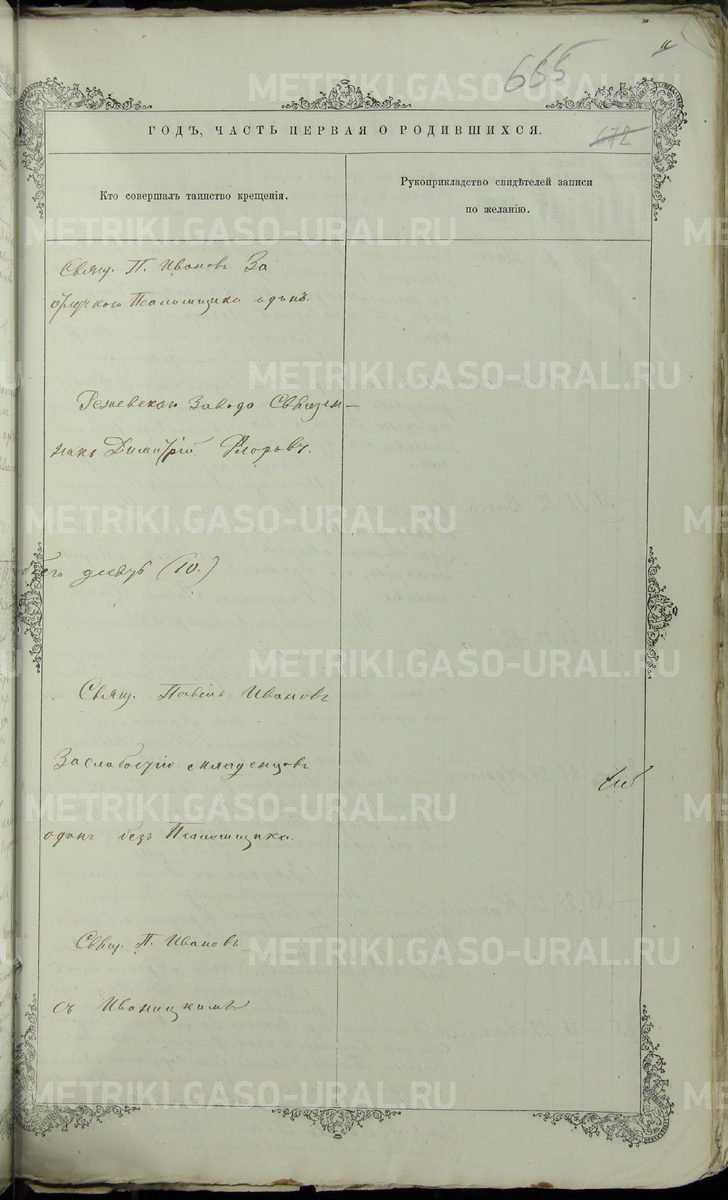 655
672
ГОДЪ, ЧАСТЬ ПЕРВАЯ О РОДИВШИХСЯ.
Кто совершалъ таинство крещенія.
Рукоприкладство свидѣтелей записи
по желанію.
Свящ. П. Ивановъ За
отлучкою Псаломщика одинъ.
Режевскаго Завода Священ-
никъ Димитрій
(10.)
Свящ. Павелъ Ивановъ
За слабостію младенцовъ
одинъ безъ Псаломщика.
Свящ. П. Ивановъ
съ Иваницкимъ
METRIKI.GASO-URAL.RU